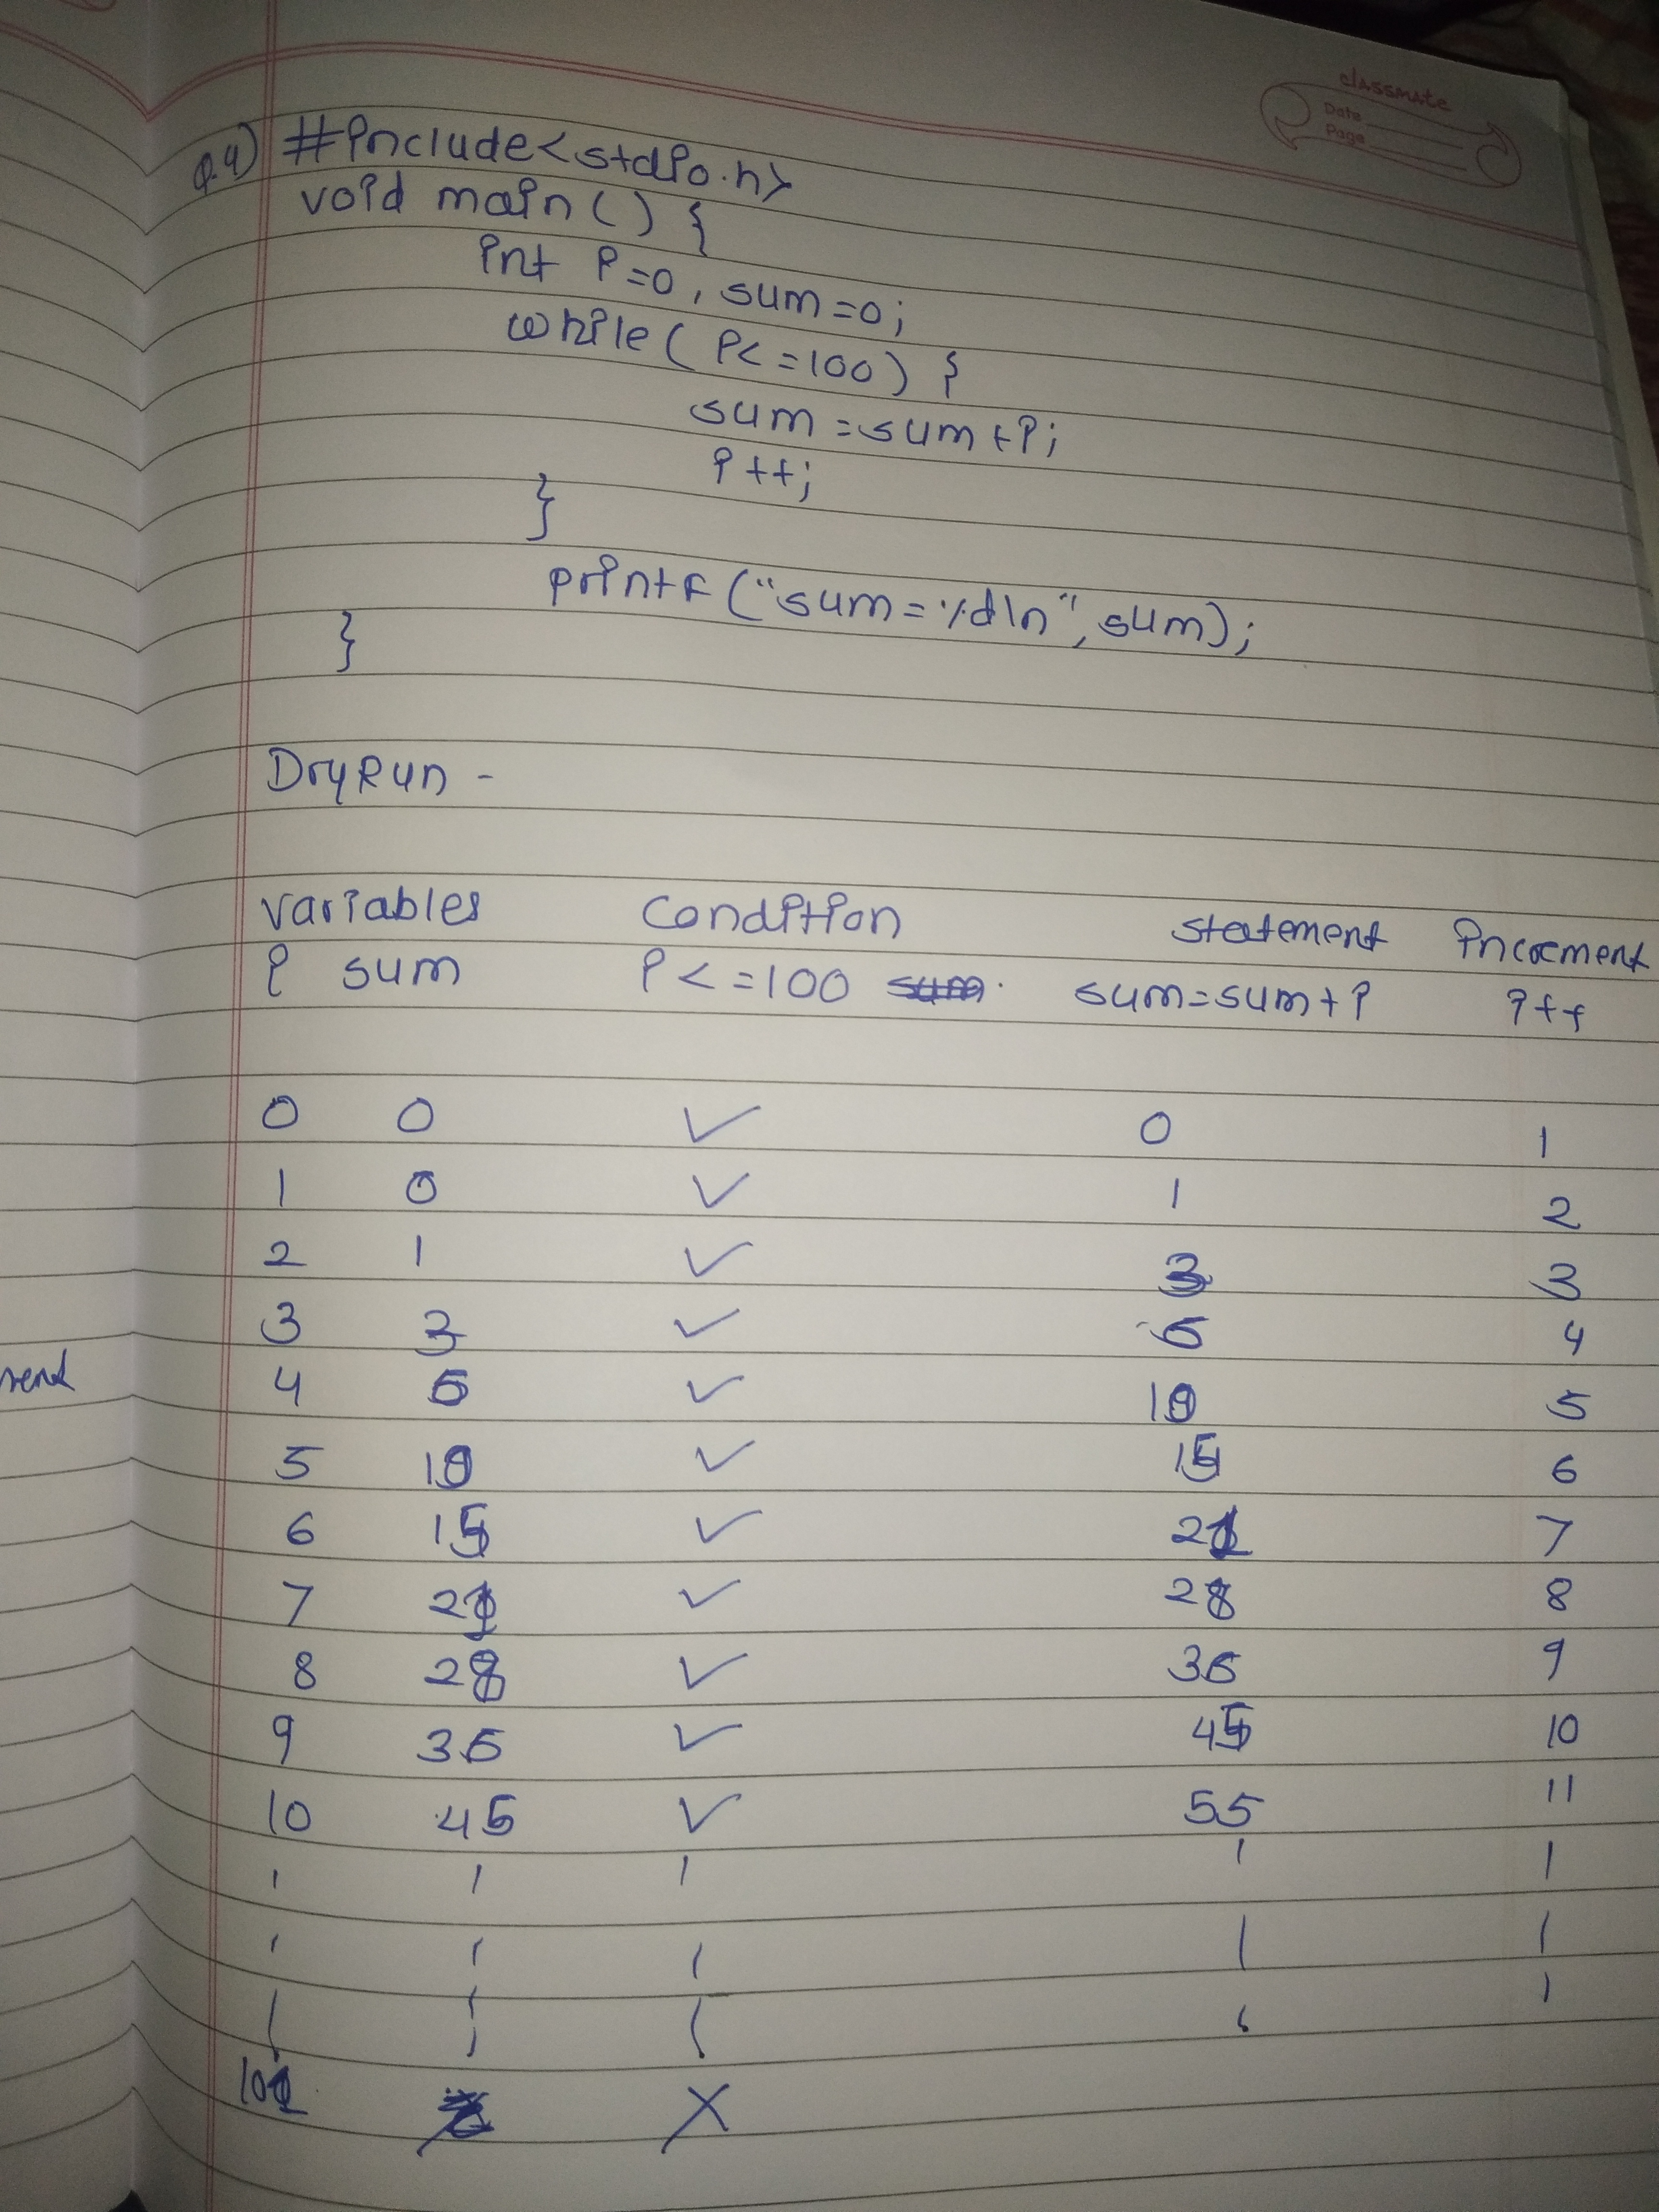 classmate
Date
Page
Q.4) #include<stdio.h>
void main() {
int i=0, sum=0;
while( i<=100) {
sum=sum+i;
i++;
}
printf("sum=%d\n", sum);
}
DryRun -
variables condition statement increment
i sum i<=100 sum=sum+i i++
0 0 ✓ 0 1
1 0 ✓ 1 2
2 1 ✓ 3 3
3 3 ✓ 6 4
4 6 ✓ 10 5
5 10 ✓ 15 6
6 15 ✓ 21 7
7 21 ✓ 28 8
8 28 ✓ 36 9
9 36 ✓ 45 10
10 45 ✓ 55 11
101 X